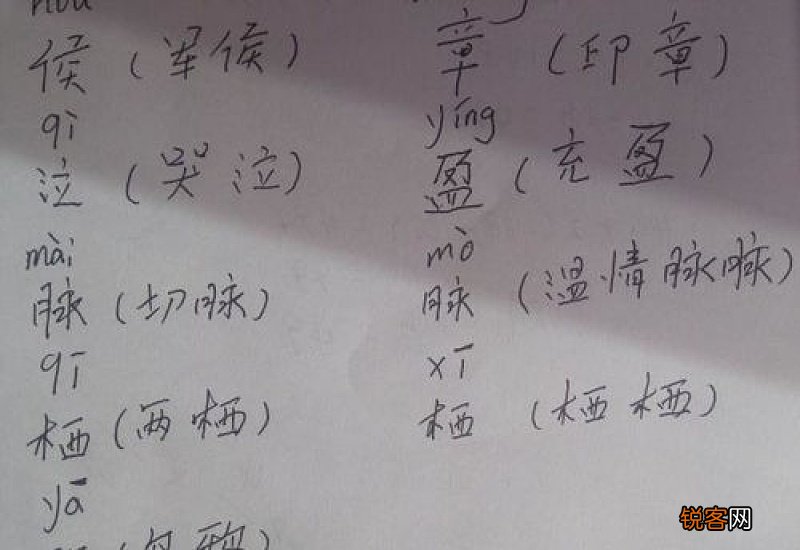 侯（军侯） 章（印章）
qì yíng
泣（哭泣） 盈（充盈）
mài mò
脉（切脉） 脉（温情脉脉）
qī xī
栖（两栖） 栖（栖栖）
yā
锐客网